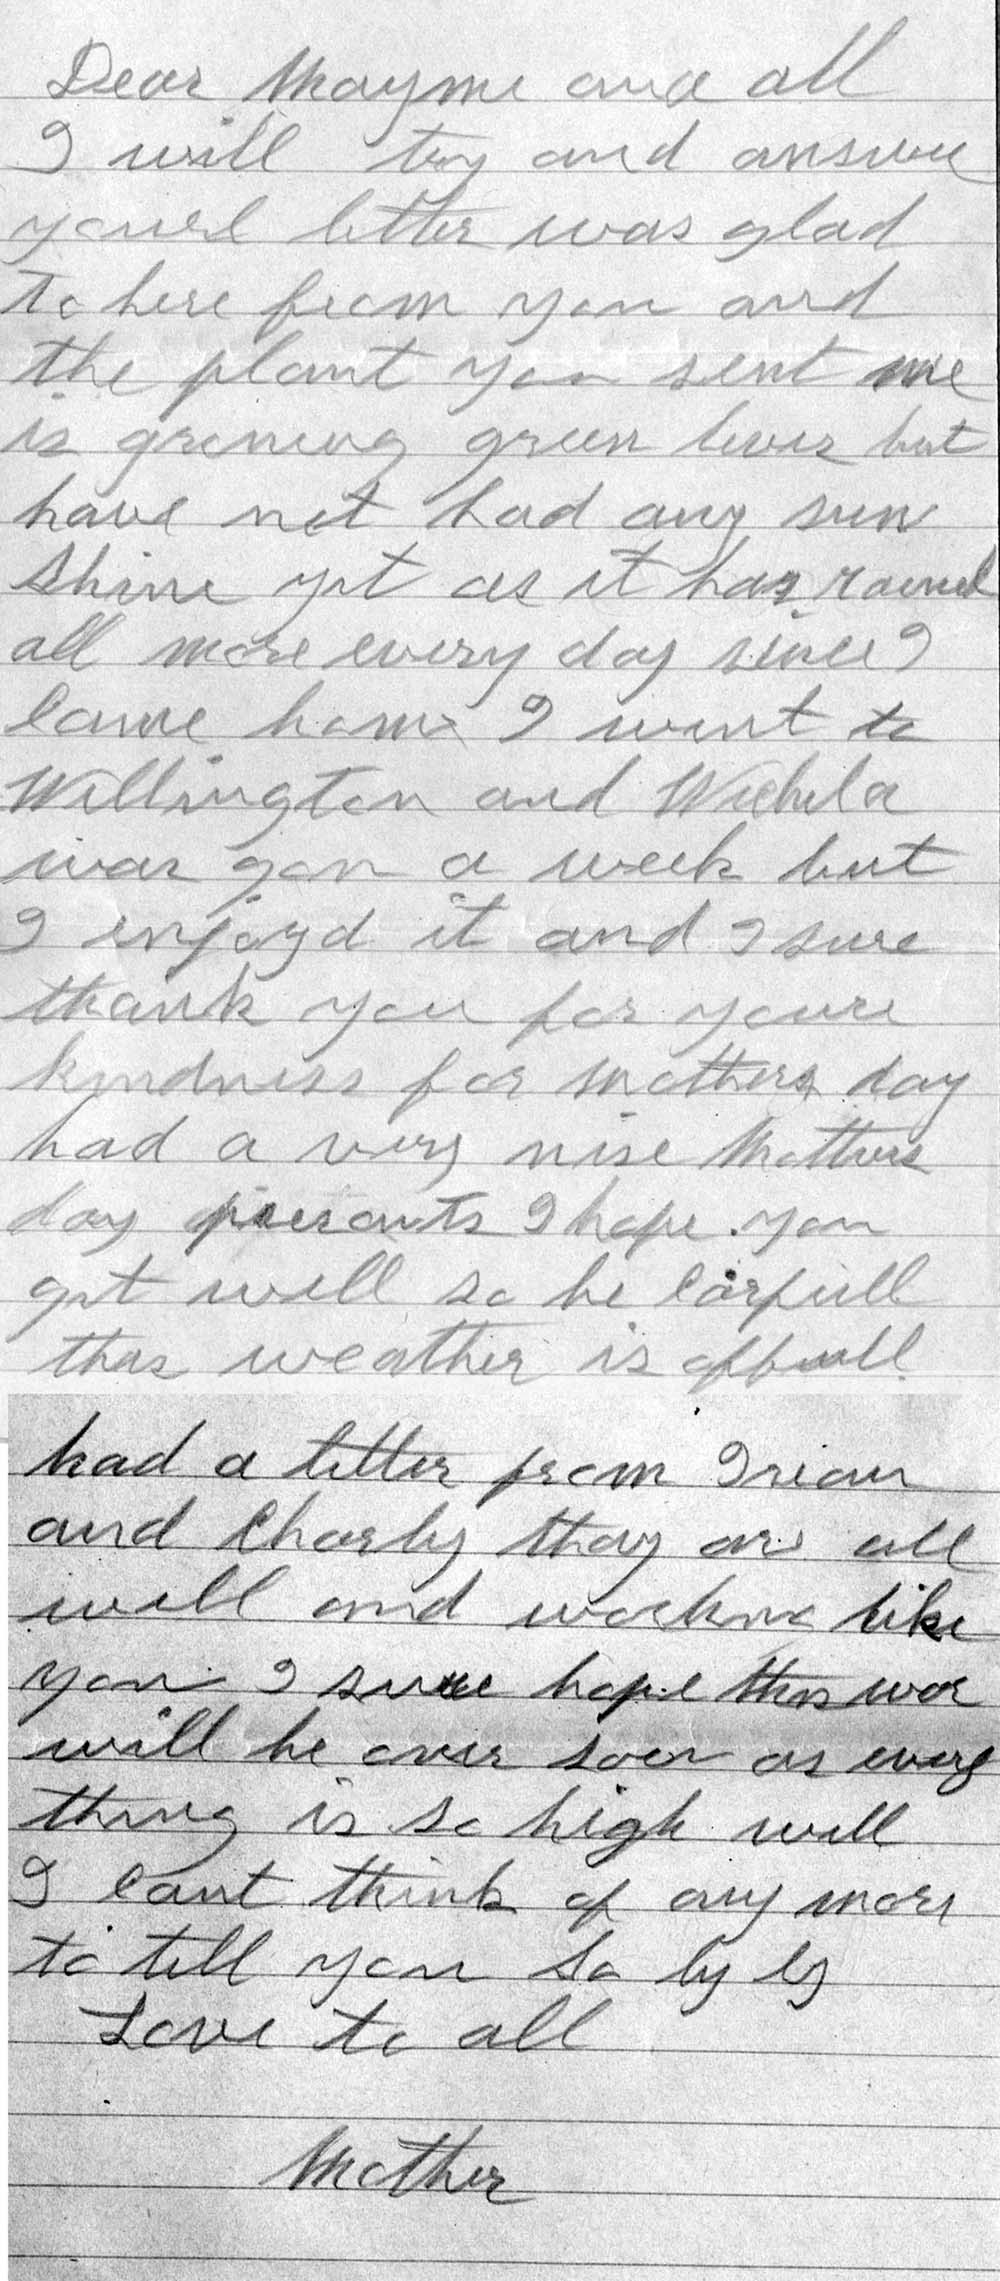 Dear Mayme and all
I will try and answer
youre letter was glad
to here from you and
the plant you sent me
is growing green leves but
have not had any sun
shine yet as it has rained
all more every day since I
Came home I went to
Wellington and Wichita
was gon a week but
I enjoyd it and I sure
thank you for youre
kindness for mothers day
had a very nise Mothers
day presants I hope you
get well so be Carfull
thas weather is offull.
had a letter from
and Charly thay are all
well and working like
you I sure hope this war
will be over soon as every
thing is so high well
I cant think of any more
to tell you So by by
Love to all
Mother